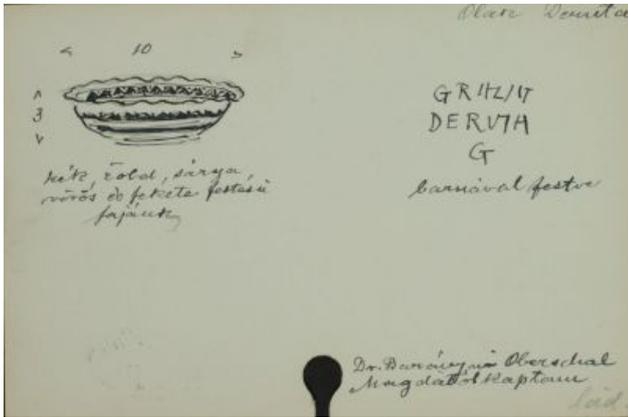 Olasz Deruta
< 10 >
^
3
v
kék, zöld, sárga,
vörös és fekete festésű
fajánsz
DERUTA
G
barnával festve
Dr. Baranyai Oberschal
Magdától kaptam